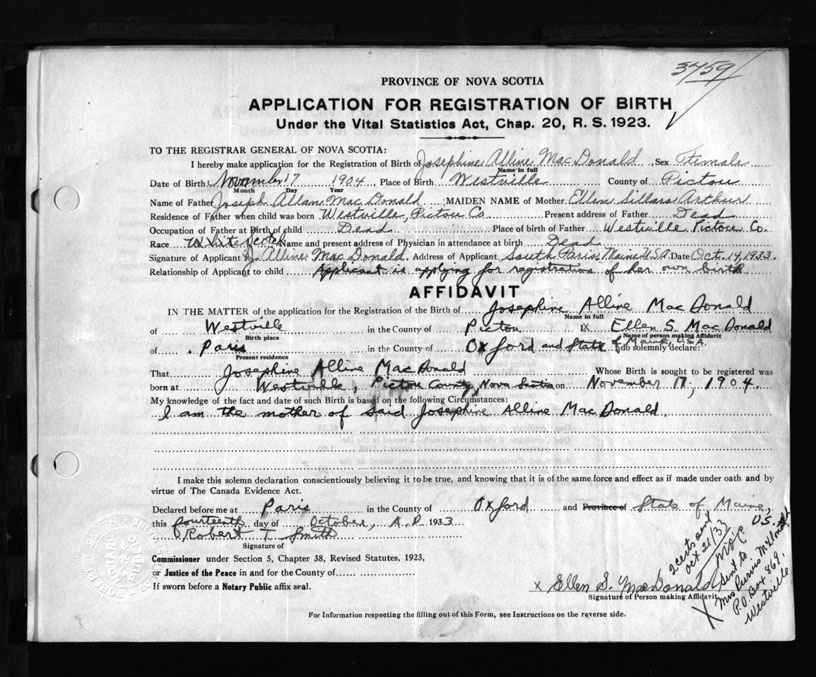 3459
PROVINCE OF NOVA SCOTIA
APPLICATION FOR REGISTRATION OF BIRTH
Under the Vital Statistics Act, Chap. 20, R. S. 1923.
TO THE REGISTRAR GENERAL OF NOVA SCOTIA:
I hereby make application for the Registration of Birth of Josephine Alline MacDonald Sex Female
Name in full
Date of Birth November 17 1904 Place of Birth Westville County of Pictou
Month Day Year
Name of Father Joseph Allan MacDonald MAIDEN NAME of Mother Ellen Sillars Arthur
Residence of Father when child was born Westville, Pictou Co Present address of Father Dead
Occupation of Father at Birth of child Dead Place of birth of Father Westville Pictou Co.
Race White Scotch Name and present address of Physician in attendance at birth Dead
Signature of Applicant J. Alline MacDonald. Address of Applicant South Paris Maine U.S.A. Date Oct. 14, 1933.
Relationship of Applicant to child Applicant is applying for registration of her own birth
AFFIDAVIT
IN THE MATTER of the application for the Registration of the Birth of Josephine Alline MacDonald
Name in full
of Westville in the County of Pictou I, Ellen S. MacDonald
Birth place Name of person making Affidavit
of Paris in the County of Oxford and State of Maine, USA do solemnly declare:
Present residence
That Josephine Alline MacDonald Whose Birth is sought to be registered was
born at Westville, Pictou County, Nova Scotia on November 17, 1904.
My knowledge of the fact and date of such Birth is based on the following Circumstances:
I am the mother of said Josephine Alline MacDonald.
I make this solemn declaration conscientiously believing it to be true, and knowing that it is of the same force and effect as if made under oath and by
virtue of The Canada Evidence Act.
Declared before me at Paris in the County of Oxford and Province of State of Maine,
U.S.
this fourteenth day of October, A.D. 1933
Robert T. Smith
Signature of
Commissioner under Section 5, Chapter 38, Revised Statutes, 1923,
or Justice of the Peace in and for the County of
If sworn before a Notary Public affix seal.
x Ellen S. MacDonald
Signature of Person making Affidavit
Oct 21/33
X sent to
Mrs
P.O Box 869.
Westville
For Information respecting the filling out of this Form, see Instructions on the reverse side.